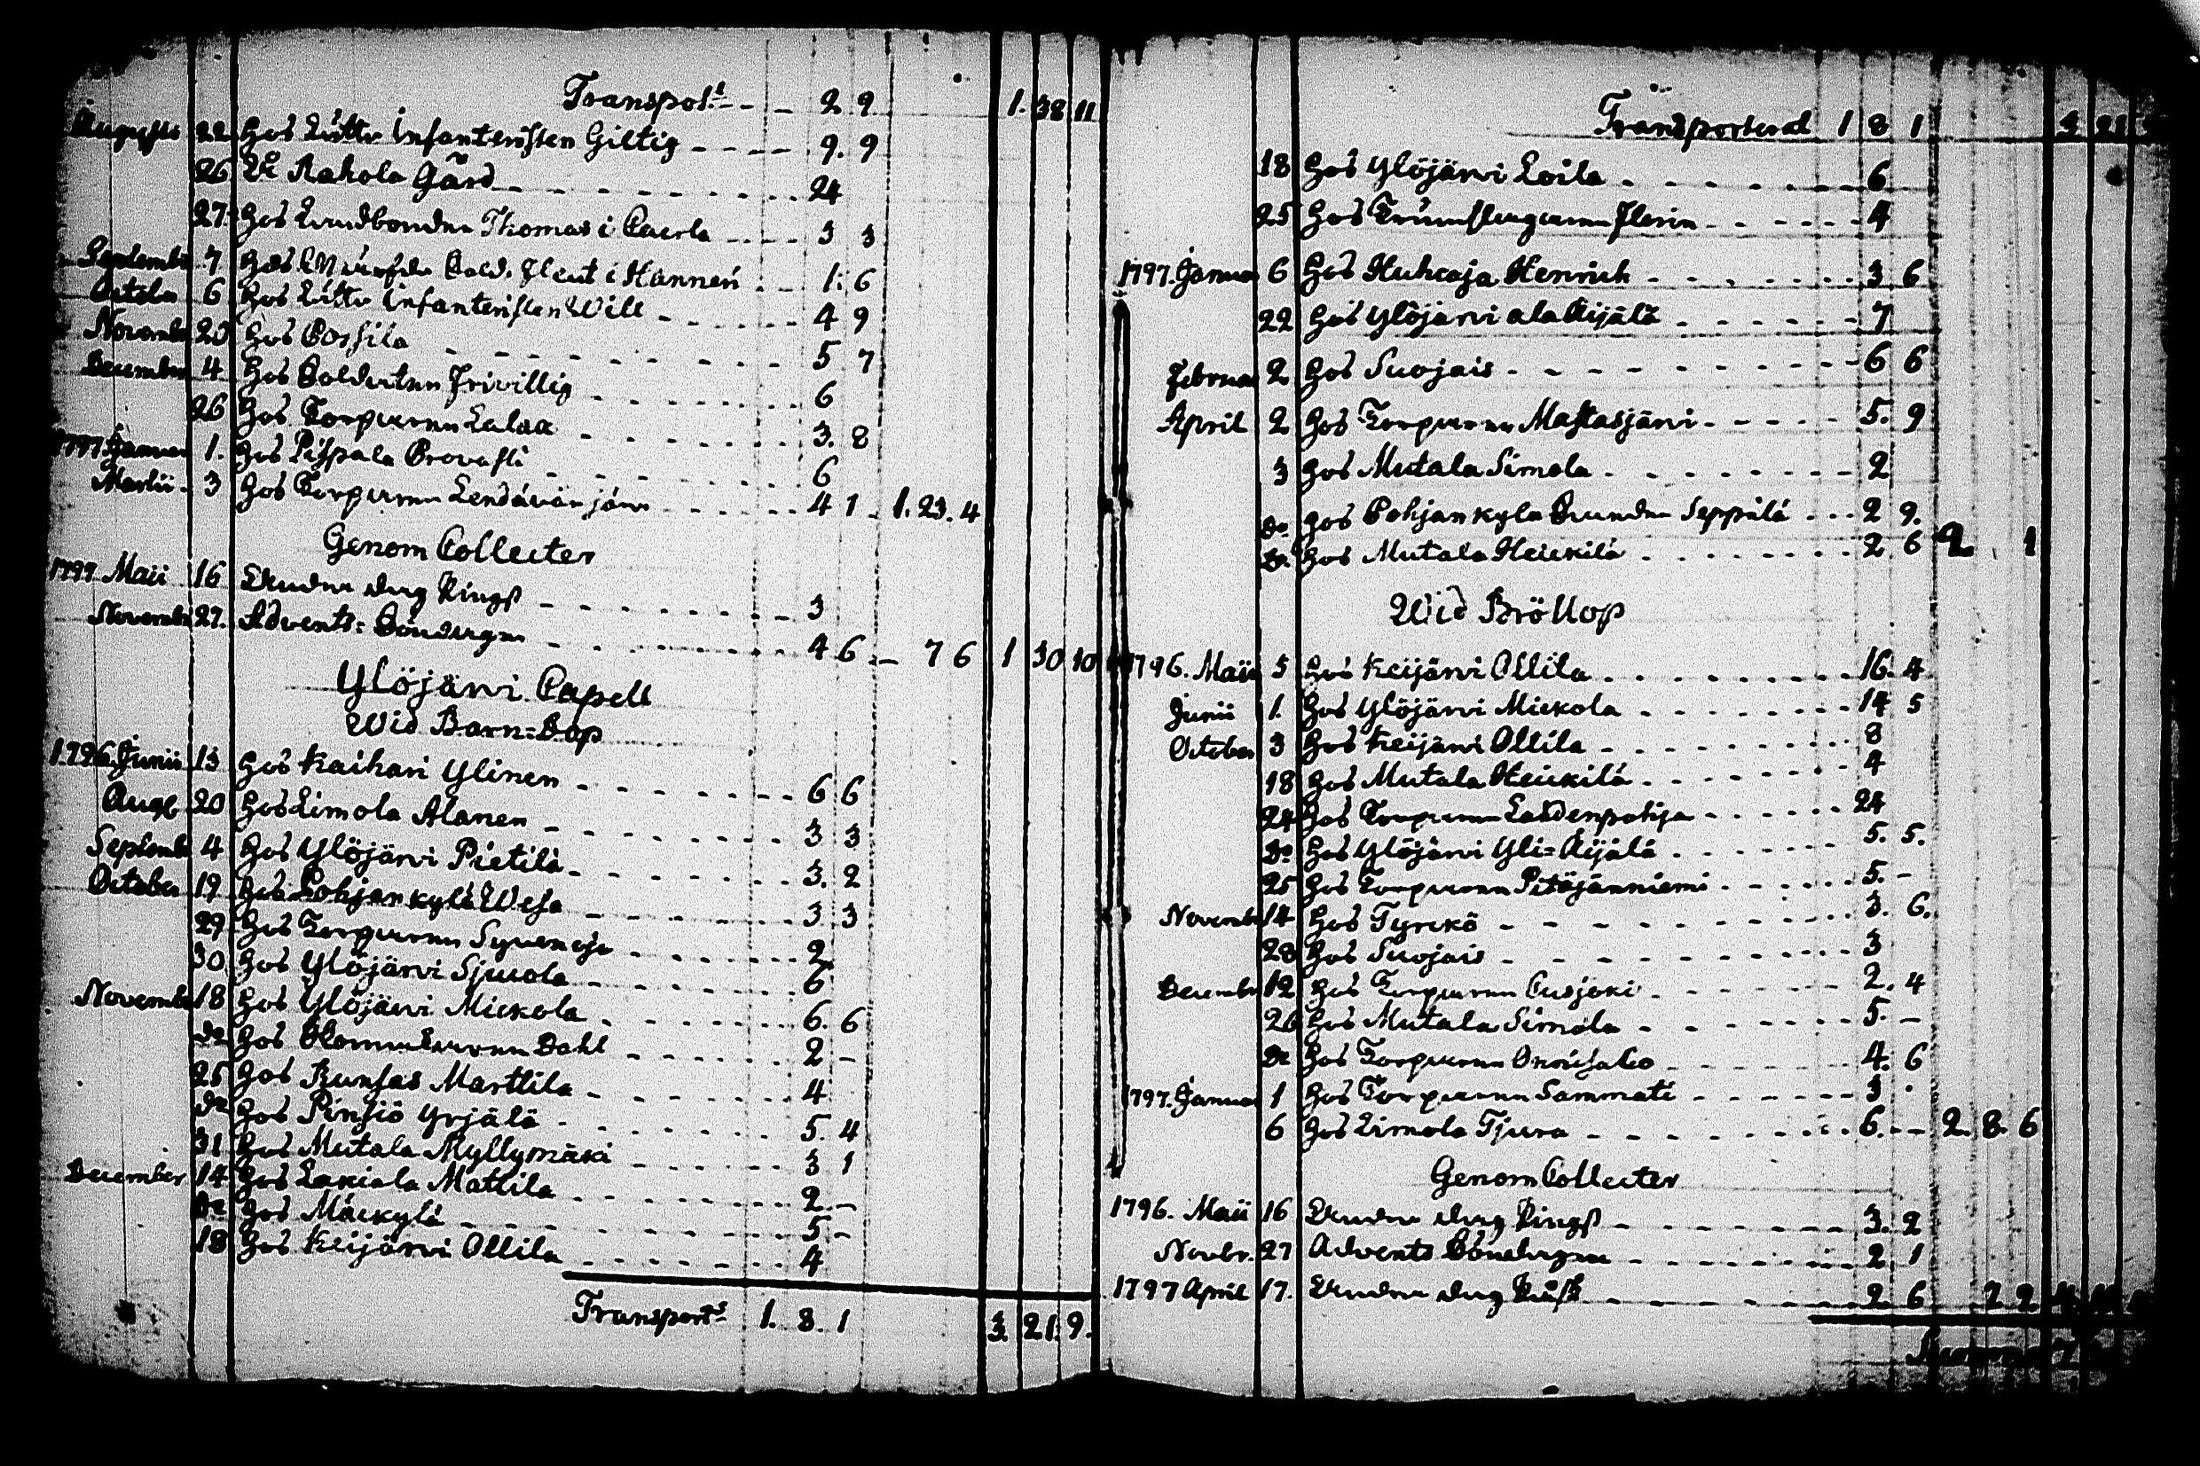 Transport - - 2 9 1. 38 11
Augusti 22 Hos Lilla Infanteristen Giltig - - - - 9. 9
26 Rahola Gård - - - - 24
27 Hos Landbonden Thomas i - - - - 3 3
Septemb 7 Hos i Hanneri - - 1. 6
Octobr 6 Hos Infanteristen Will - - - - 4 9
Novembr 20 Hos Possila - - - - 5 7
December 4 Hos Soldaten Frivillig - - - - 6
26 Hos Torparen Lalaa - - - - 3. 8
1797 Januari 1. Hos Pispala Provasti - - - - 6
Martii 3 Hos Torparen - - - - 4 1 1. 23. 4
Genom Collecter
1797 Maii 16 Andra dag Pingst - - - - 3
Novembr 27. Advents= Böndagen - - - - 4 6 - 7 6 1 30 10
Ylöjärvi Capell
Wid Barn=Dop
1796 Junii 13 Hos Kaihari Ylinen - - - - 6 6
Aug 20 Hos Limola Alanen - - - - 3 3
Septemb 4 Hos Ylöjärvi Pietilä - - - - 3. 2
October 19 Hos Pohjankylä Wesa - - - - 3 3
29 Hos Torparen - - - - 2
30 Hos Ylöjärvi Sjuola - - - - 6
Novembr 18 Hos Ylöjärvi Mickola - - - - 6. 6
Do Hos Dahl - - - - 2 -
25 Hos Runsas Marttila - - - - 4
Do Hos Pinsiö Yrjälä - - - - 5. 4
31 Hos Mutala Myllymäki - - - - 3 1
December 14 Hos Lakiala Mattila - - - - 2 -
Do Hos Mäckylä - - - - 5 -
18 Hos Keijärvi Ollila - - - - 4
Transport 1. 8. 1 3. 21. 9.
Transporterad 1 8 1 3 21
18 Hos Ylöjärvi Loila - - - - 6
25 Hos - - - - 4
1797. Januar 6 Hos Huhcaja Henrich - - - - 3 6
22 Hos Ylöjärvi ala Äijälä - - - - 7
Februa 2 Hos Suojais - - - - 6 6
April 2 Hos Torparen Mastasjärvi - - - - 5. 9
3 Hos Mutala Simola - - - - 2
Do Hos Pohjankyla Seppälä - - - 2 9.
Do Hos Mutala Heickilä - - - - 2 6 2 1
Wid Bröllop
1796. Maii 5 Hos Keijärvi Ollila - - - - 16. 4
Junii 1. Hos Ylöjärvi Mickola - - - - 14 5
October 3 Hos Keijärvi Ollila - - - - 8
18 Hos Mutala Heickilä - - - - 4
24 Hos Torparen Lahdenpohja - - - - 24
Do Hos Ylöjärvi Yli=Äijälä - - - - 5. 5.
25 Hos Torparen Pitäjänniemi - - - - 5. -
Novembr 14 Hos Tyrckö - - - - 3. 6.
28 Hos Suojais - - - - 3
Decembr 12 Hos Torparen Cusjoki - - - - 2. 4
26 Hos Mutala Simola - - - - 5. -
Do Hos Torparen - - - - 4. 6
1797. Januar 1 Hos Torparen Sammati - - - - 3
6 Hos Limola Tjura - - - - 6. - 2. 8. 6
Genom Collecter
1796. Maii 16 Andra dag Pingst - - - - 3. 2
Novbr. 27 Advents Bönedagen - - - - 2 1
1797 April 17. Andra dag Påsk - - - - 2 6 7 9